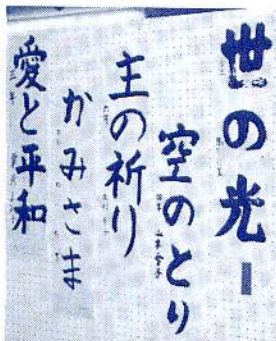 世の光
空のとり
主の祈り
かみさま
愛と平和